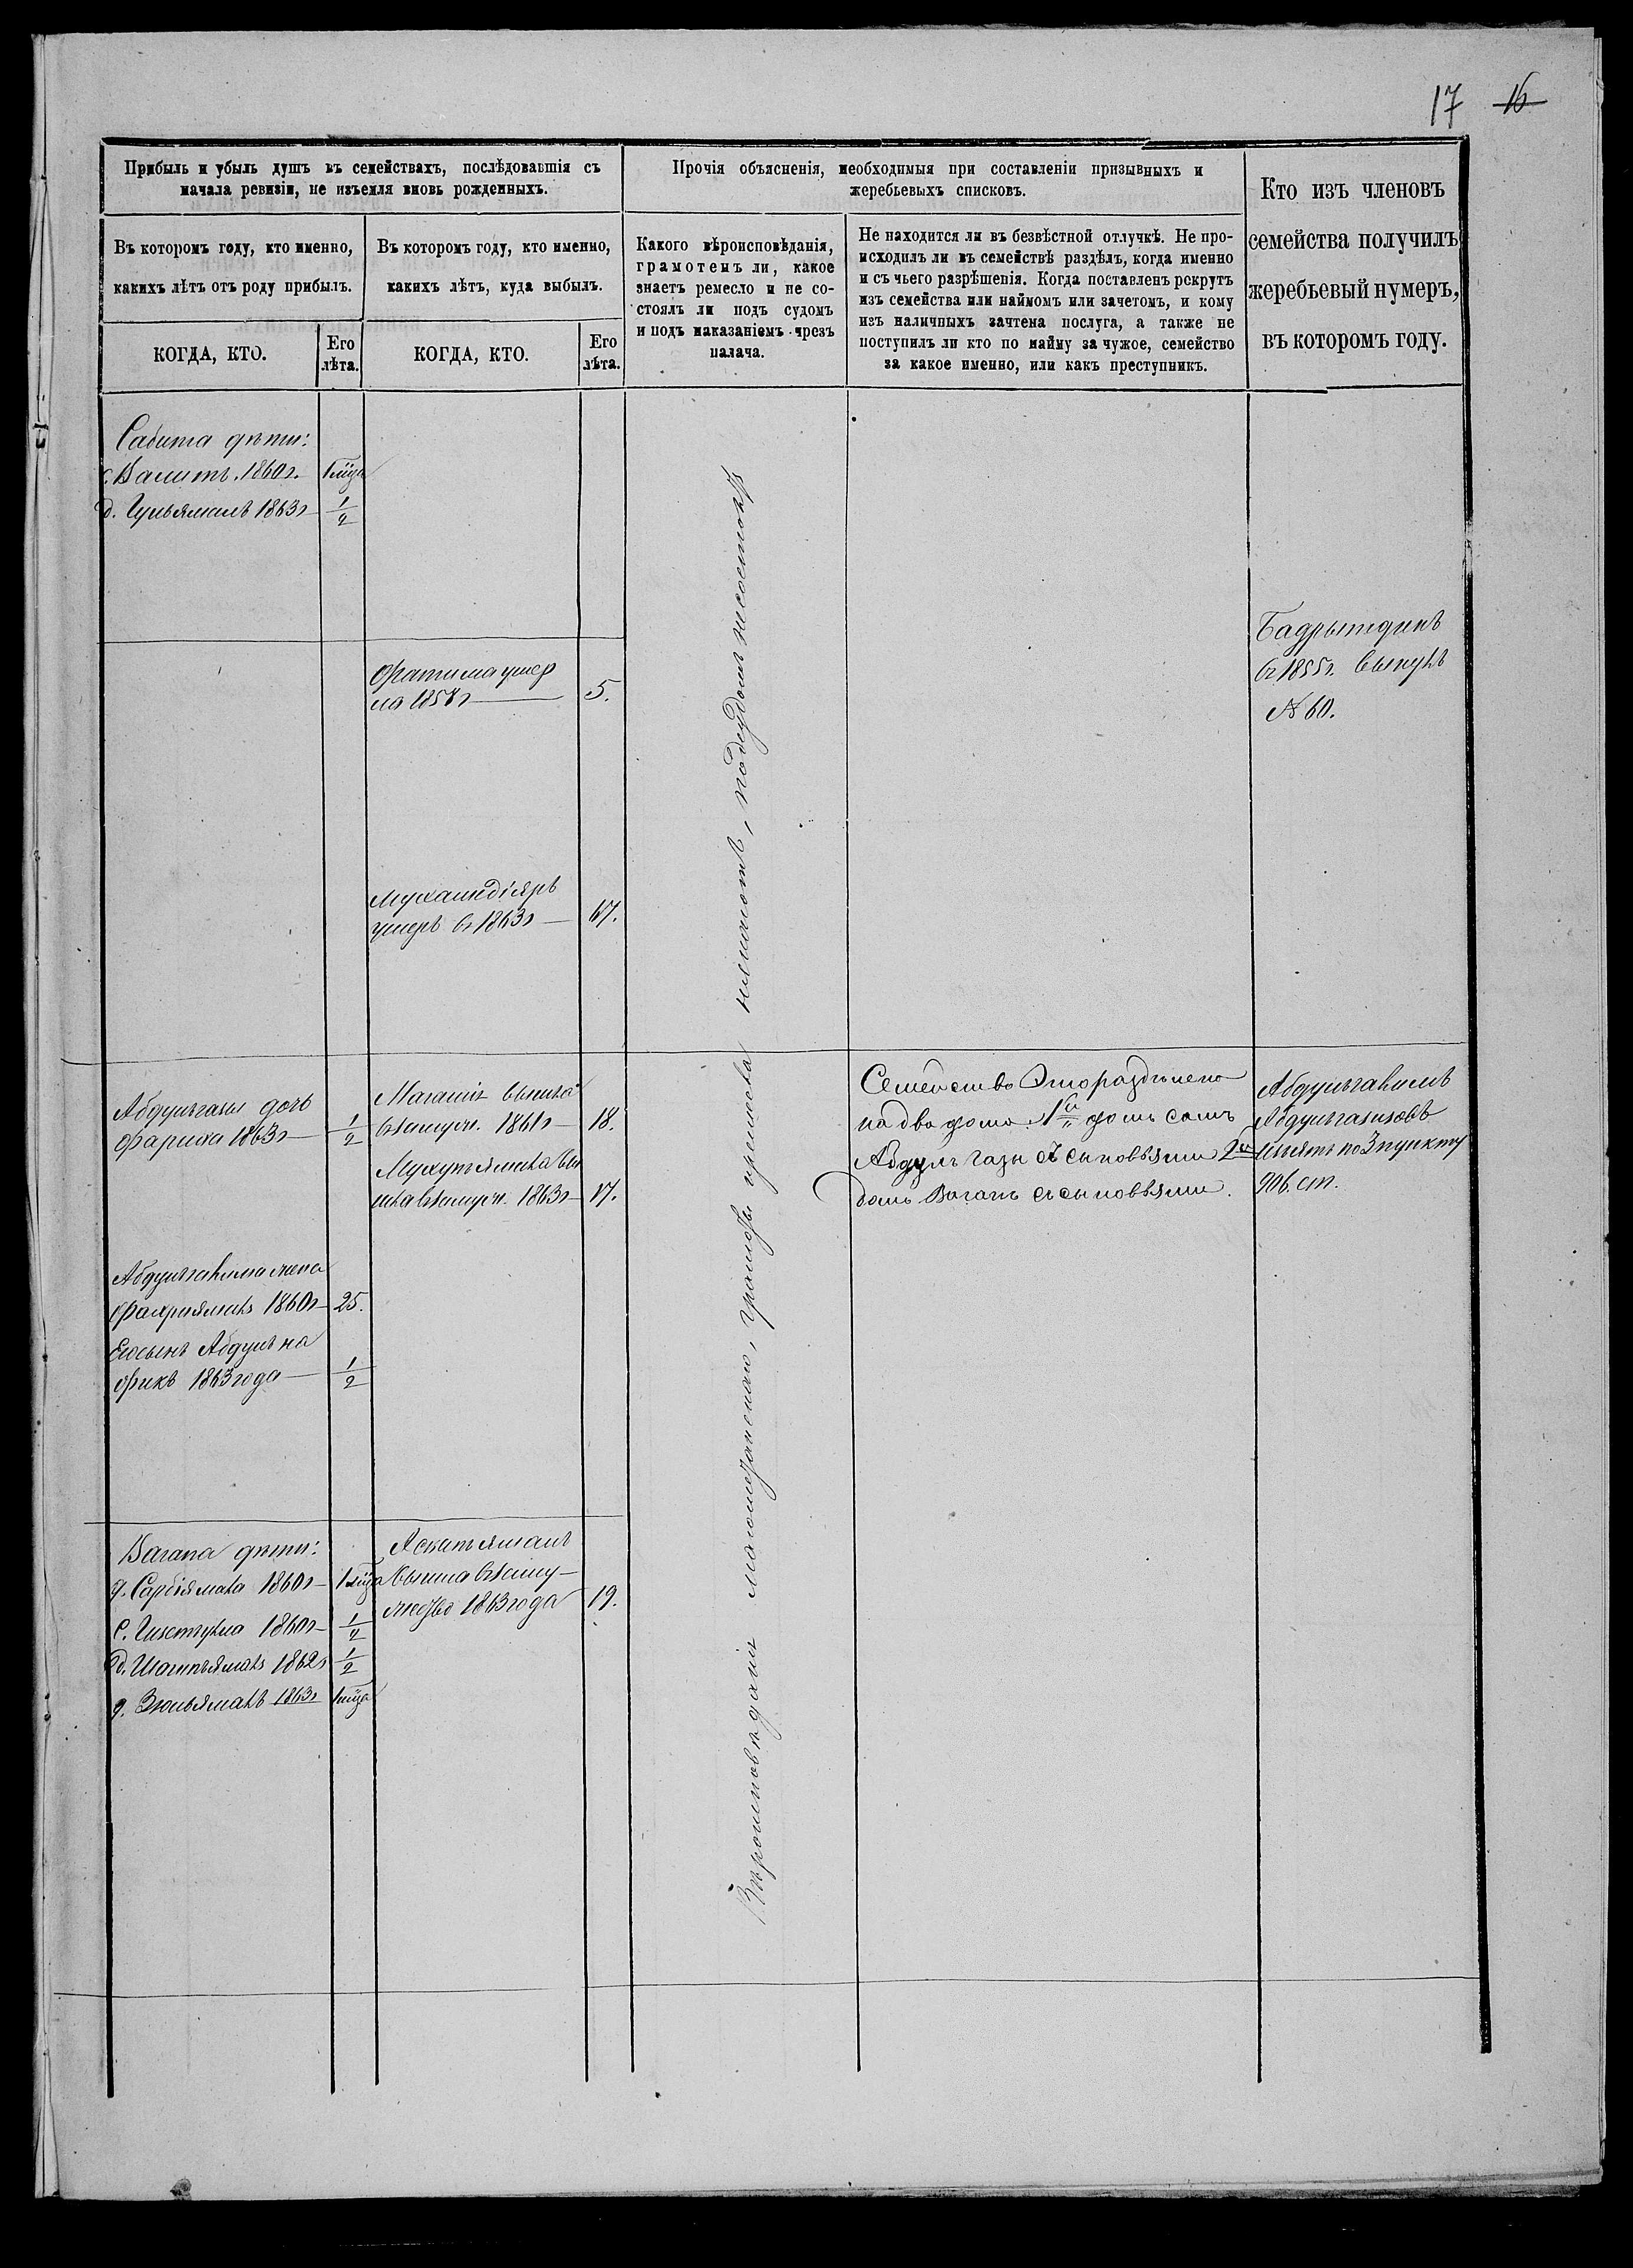 17 16
Прибыль и убыль душъ въ семействахъ, послѣдовавшія съ
начала ревизіи, не изъемля вновь рожденныхъ.
Прочія объясненія, необходимыя при составленіи призывныхъ и
жеребьевыхъ списковъ.
Кто изъ членовъ
семейства получилъ
жеребьевый нумеръ,
въ которомъ году.
Въ которомъ году, кто именно,
какихъ лѣтъ отъ роду прибылъ.
Въ которомъ году, кто именно,
какихъ лѣтъ, куда выбылъ.
Какого вѣроисповѣданія,
грамотенъ ли, какое
знаетъ ремесло и не со-
стоялъ ли подъ судомъ
и подъ наказаніемъ чрезъ
палача.
Не находится ли въ безвѣстной отлучкѣ. Не про-
исходилъ ли въ семействѣ раздѣлъ, когда именно
и съ чьего разрѣшенія. Когда поставленъ рекрутъ
изъ семейства или наймомъ или зачетомъ, и кому
изъ наличныхъ зачтена послуга, а также не
поступилъ ли кто по найму за чужое, семейство
за какое именно, или какъ преступникъ.
КОГДА, КТО.
Его
лѣта.
КОГДА, КТО.
Его
лѣта.
Сабита дѣти:
с. Валитъ. 1860г.
д. 1863г 1/2
Фатима умер
ла 1858г 5.
Бадрытдинъ
въ 1855г. вынулъ
№ 60.
Мухамедіяръ
умеръ въ 1863г 67.
Абдулгазы дочь
Фариха 1863г 1/2
вышла
взамуж. 1861г 18.
вы
шла взамуж. 1863г 17.
Семейство Это раздѣлено
на два дома. 1й домъ самъ
Абдулъ гази съ сыновьями 2й
домъ Вагапъ съ сыновьями.
Абдулгазизовъ
изъятъ по 3 пункту
906. ст.
Абдулгалима жена
1860г 25.
Его сынъ Абдулъ на
фикъ 1863 года 1/2
Вагапа дѣти:
д. 1860г
с. 1860г
д. 1862г 1/2
д. 1863г
вышла взаму-
жество 1863 года 19.
Вѣроисповѣданія магометанскаго, грамоты, ремесла неимѣютъ, подсудомъ несостоятъ